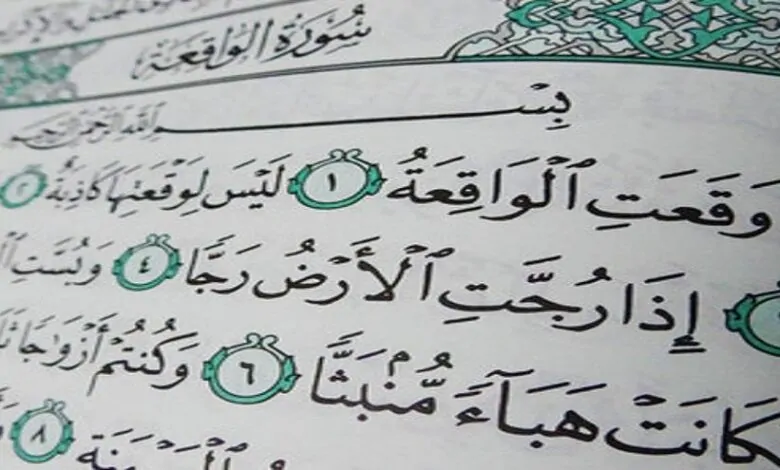 سُورَةُ الوَاقِعَةِ
بِسْمِ اللَّهِ الرَّحْمَٰنِ الرَّحِيمِ
وَقَعَتِ ٱلْوَاقِعَةُ ١ لَيْسَ لِوَقْعَتِهَا كَاذِبَةٌ ٢
إِذَا رُجَّتِ ٱلْأَرْضُ رَجًّا ٤ وَبُسَّتِ
كَانَتْ هَبَآءً مُّنۢبَثًّا ٦ وَكُنتُمْ أَزْوَٰجًا
٨